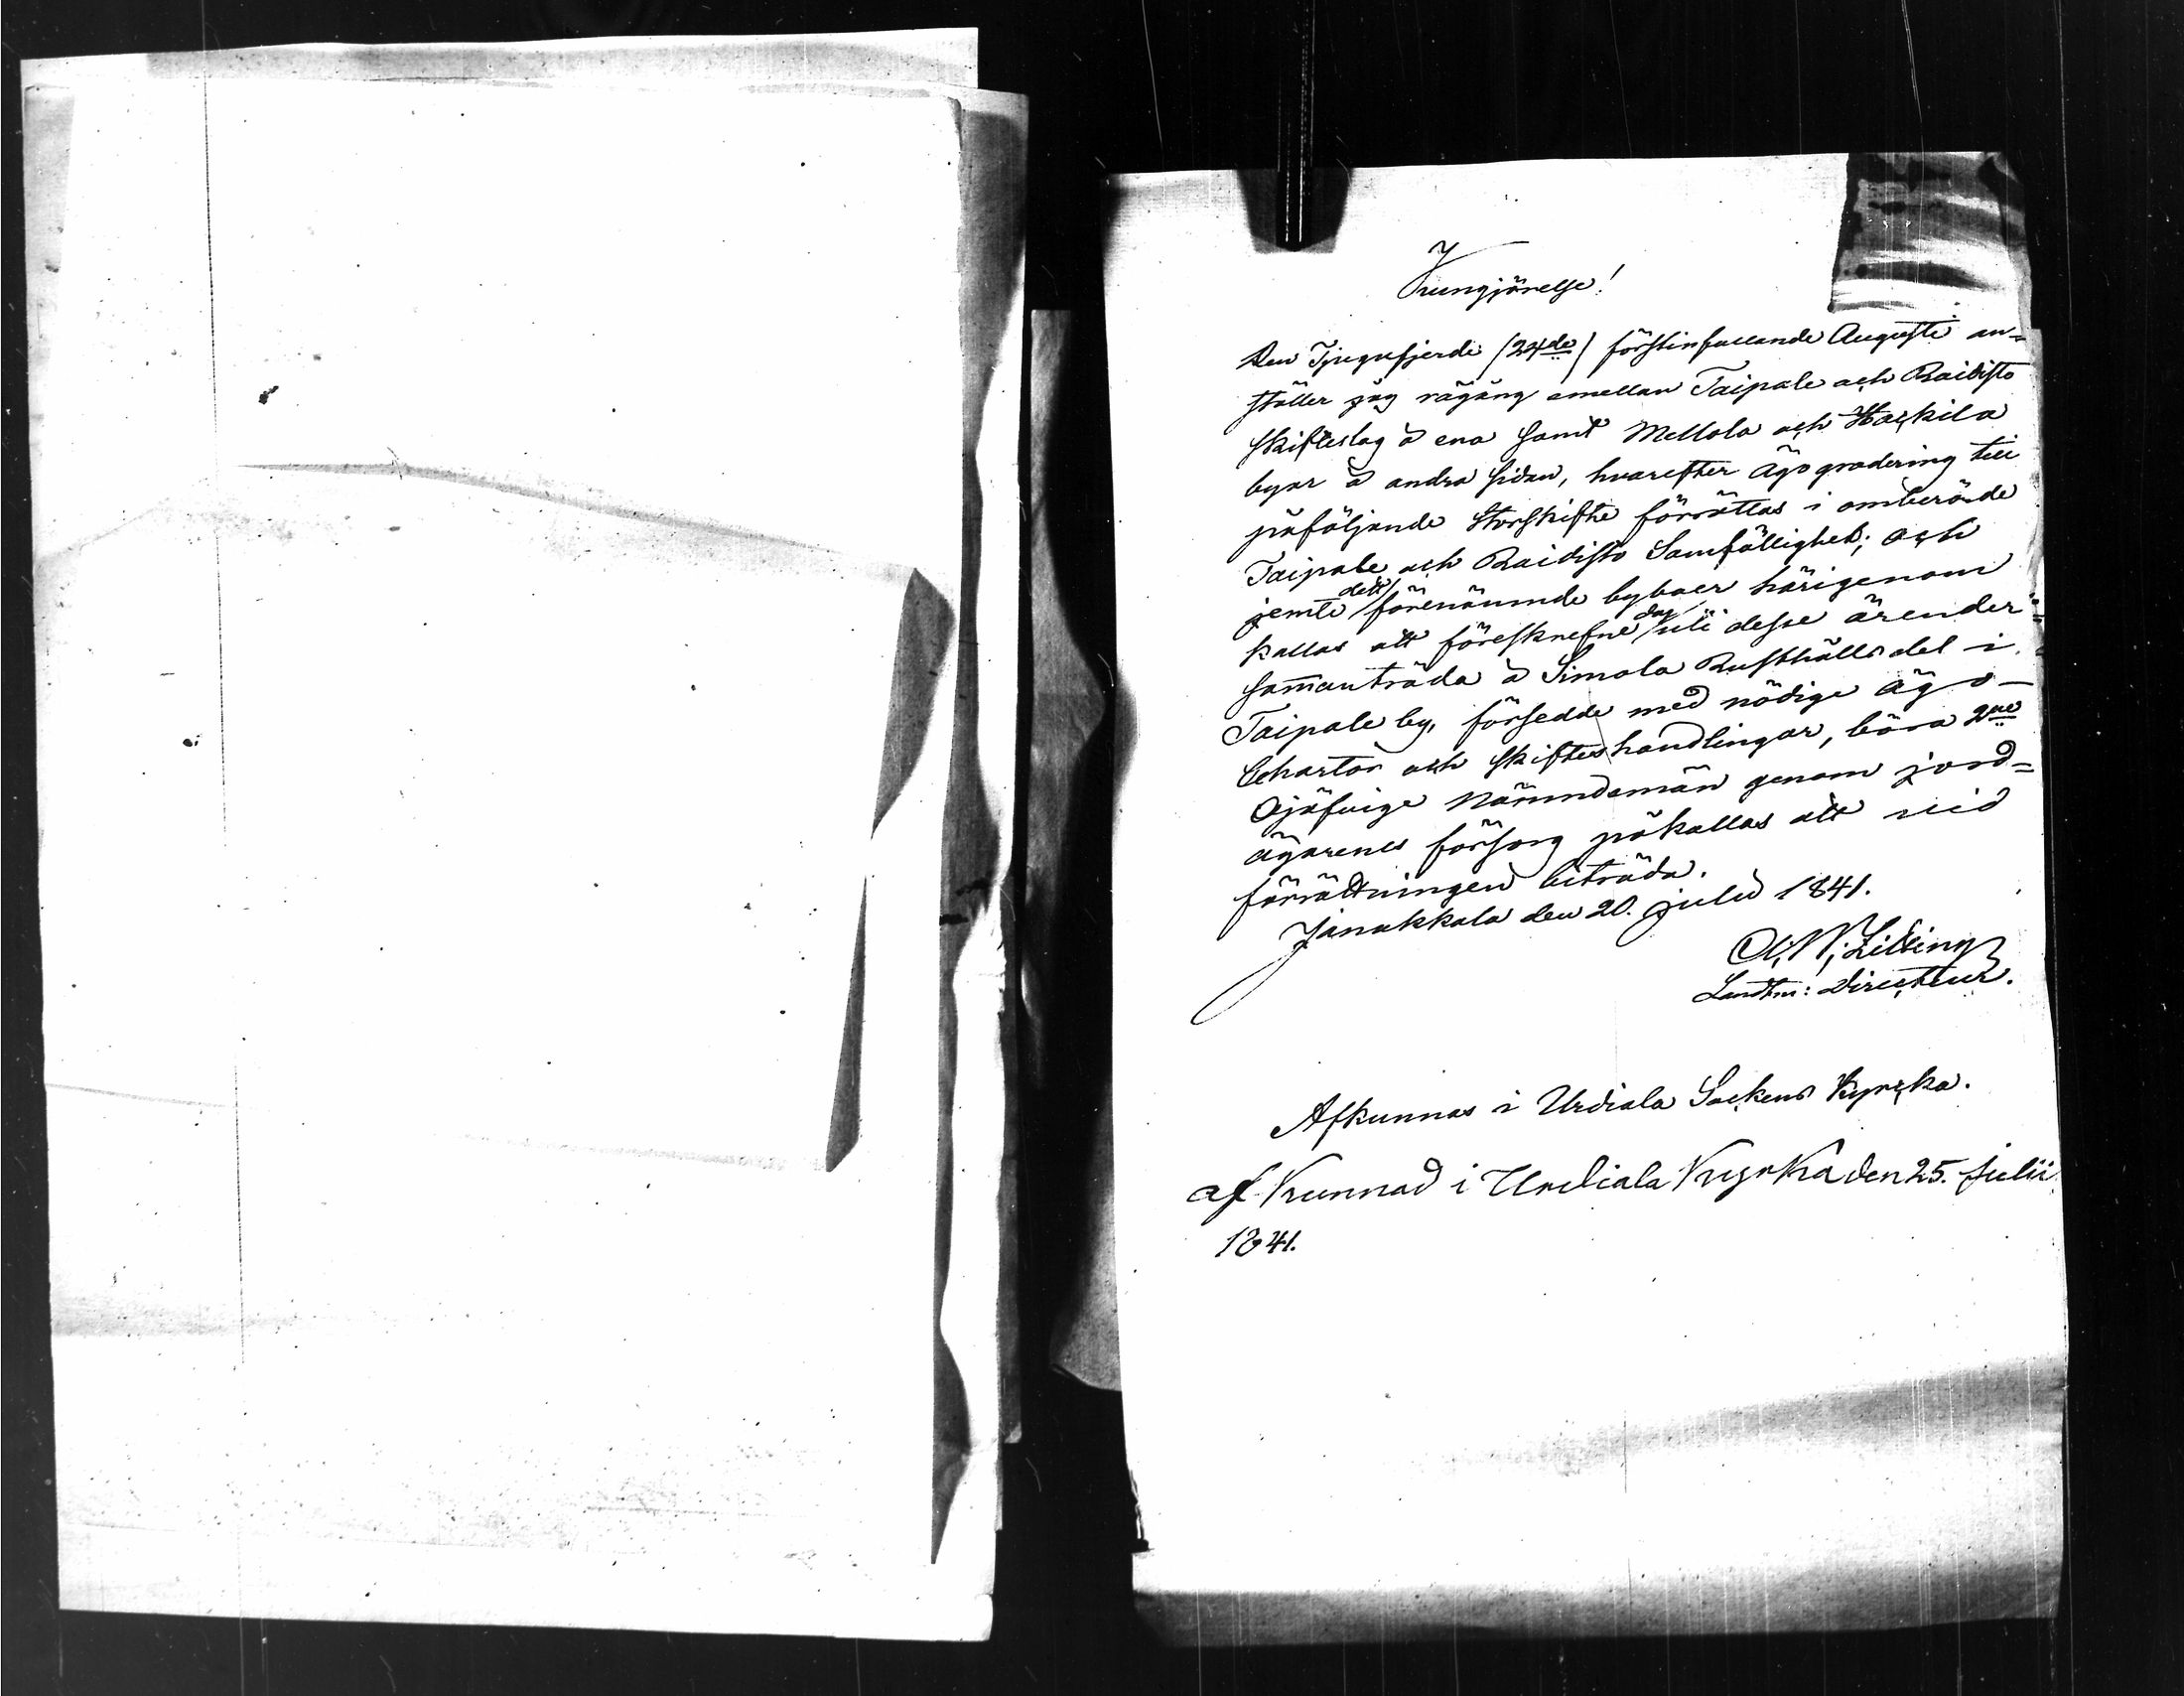 Kungjörelse!
Den Tjugufjerde (24de) förstinfallande Augusti an-
ställer jag rågång emellan Taipale och Raidisto
skifteslag å ena samt Mellola och Hackila
byar å andra sidan, hvarefter ägogradering till
påföljande Storskifte förrättas i omberörde
Taipale och Raidisto Samfällighet; och
jemte det förenämnde byboer härigenom
kallas att föreskrefne dag till desse ärender
sammanträda å Simola Rusthålls del i
Taipale by, försedde med nödige ägo-
Chartor och skifteshandlingar, böra 2ne
Ojäfvige Nämndemän genom jord=
ägarenes försorg påkallas att vid
förrättningen biträda.
Janakkala den 20. Julii 1841.
Landtm: Directeur.
Afkunnas i Urdiala Sockens Kyrcka.
af Kunnad i Urdiala Kyrka den 25. Julii
1841.